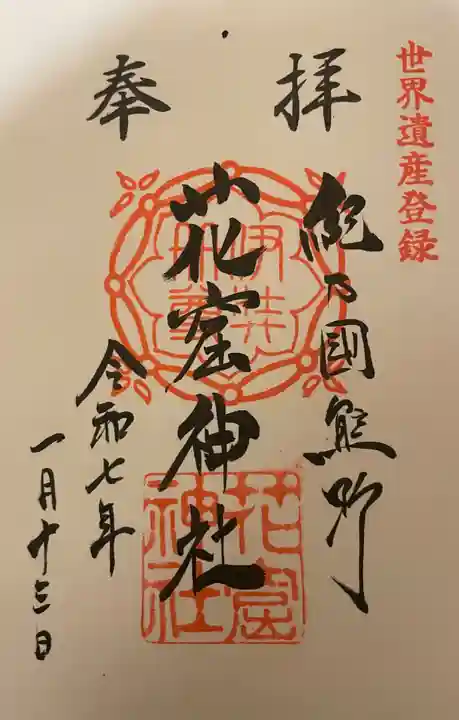 世界遺産登録
奉拝
紀乃國熊野
花窟神社
令和七年
一月十三日
伊弉冊尊
花窟神社